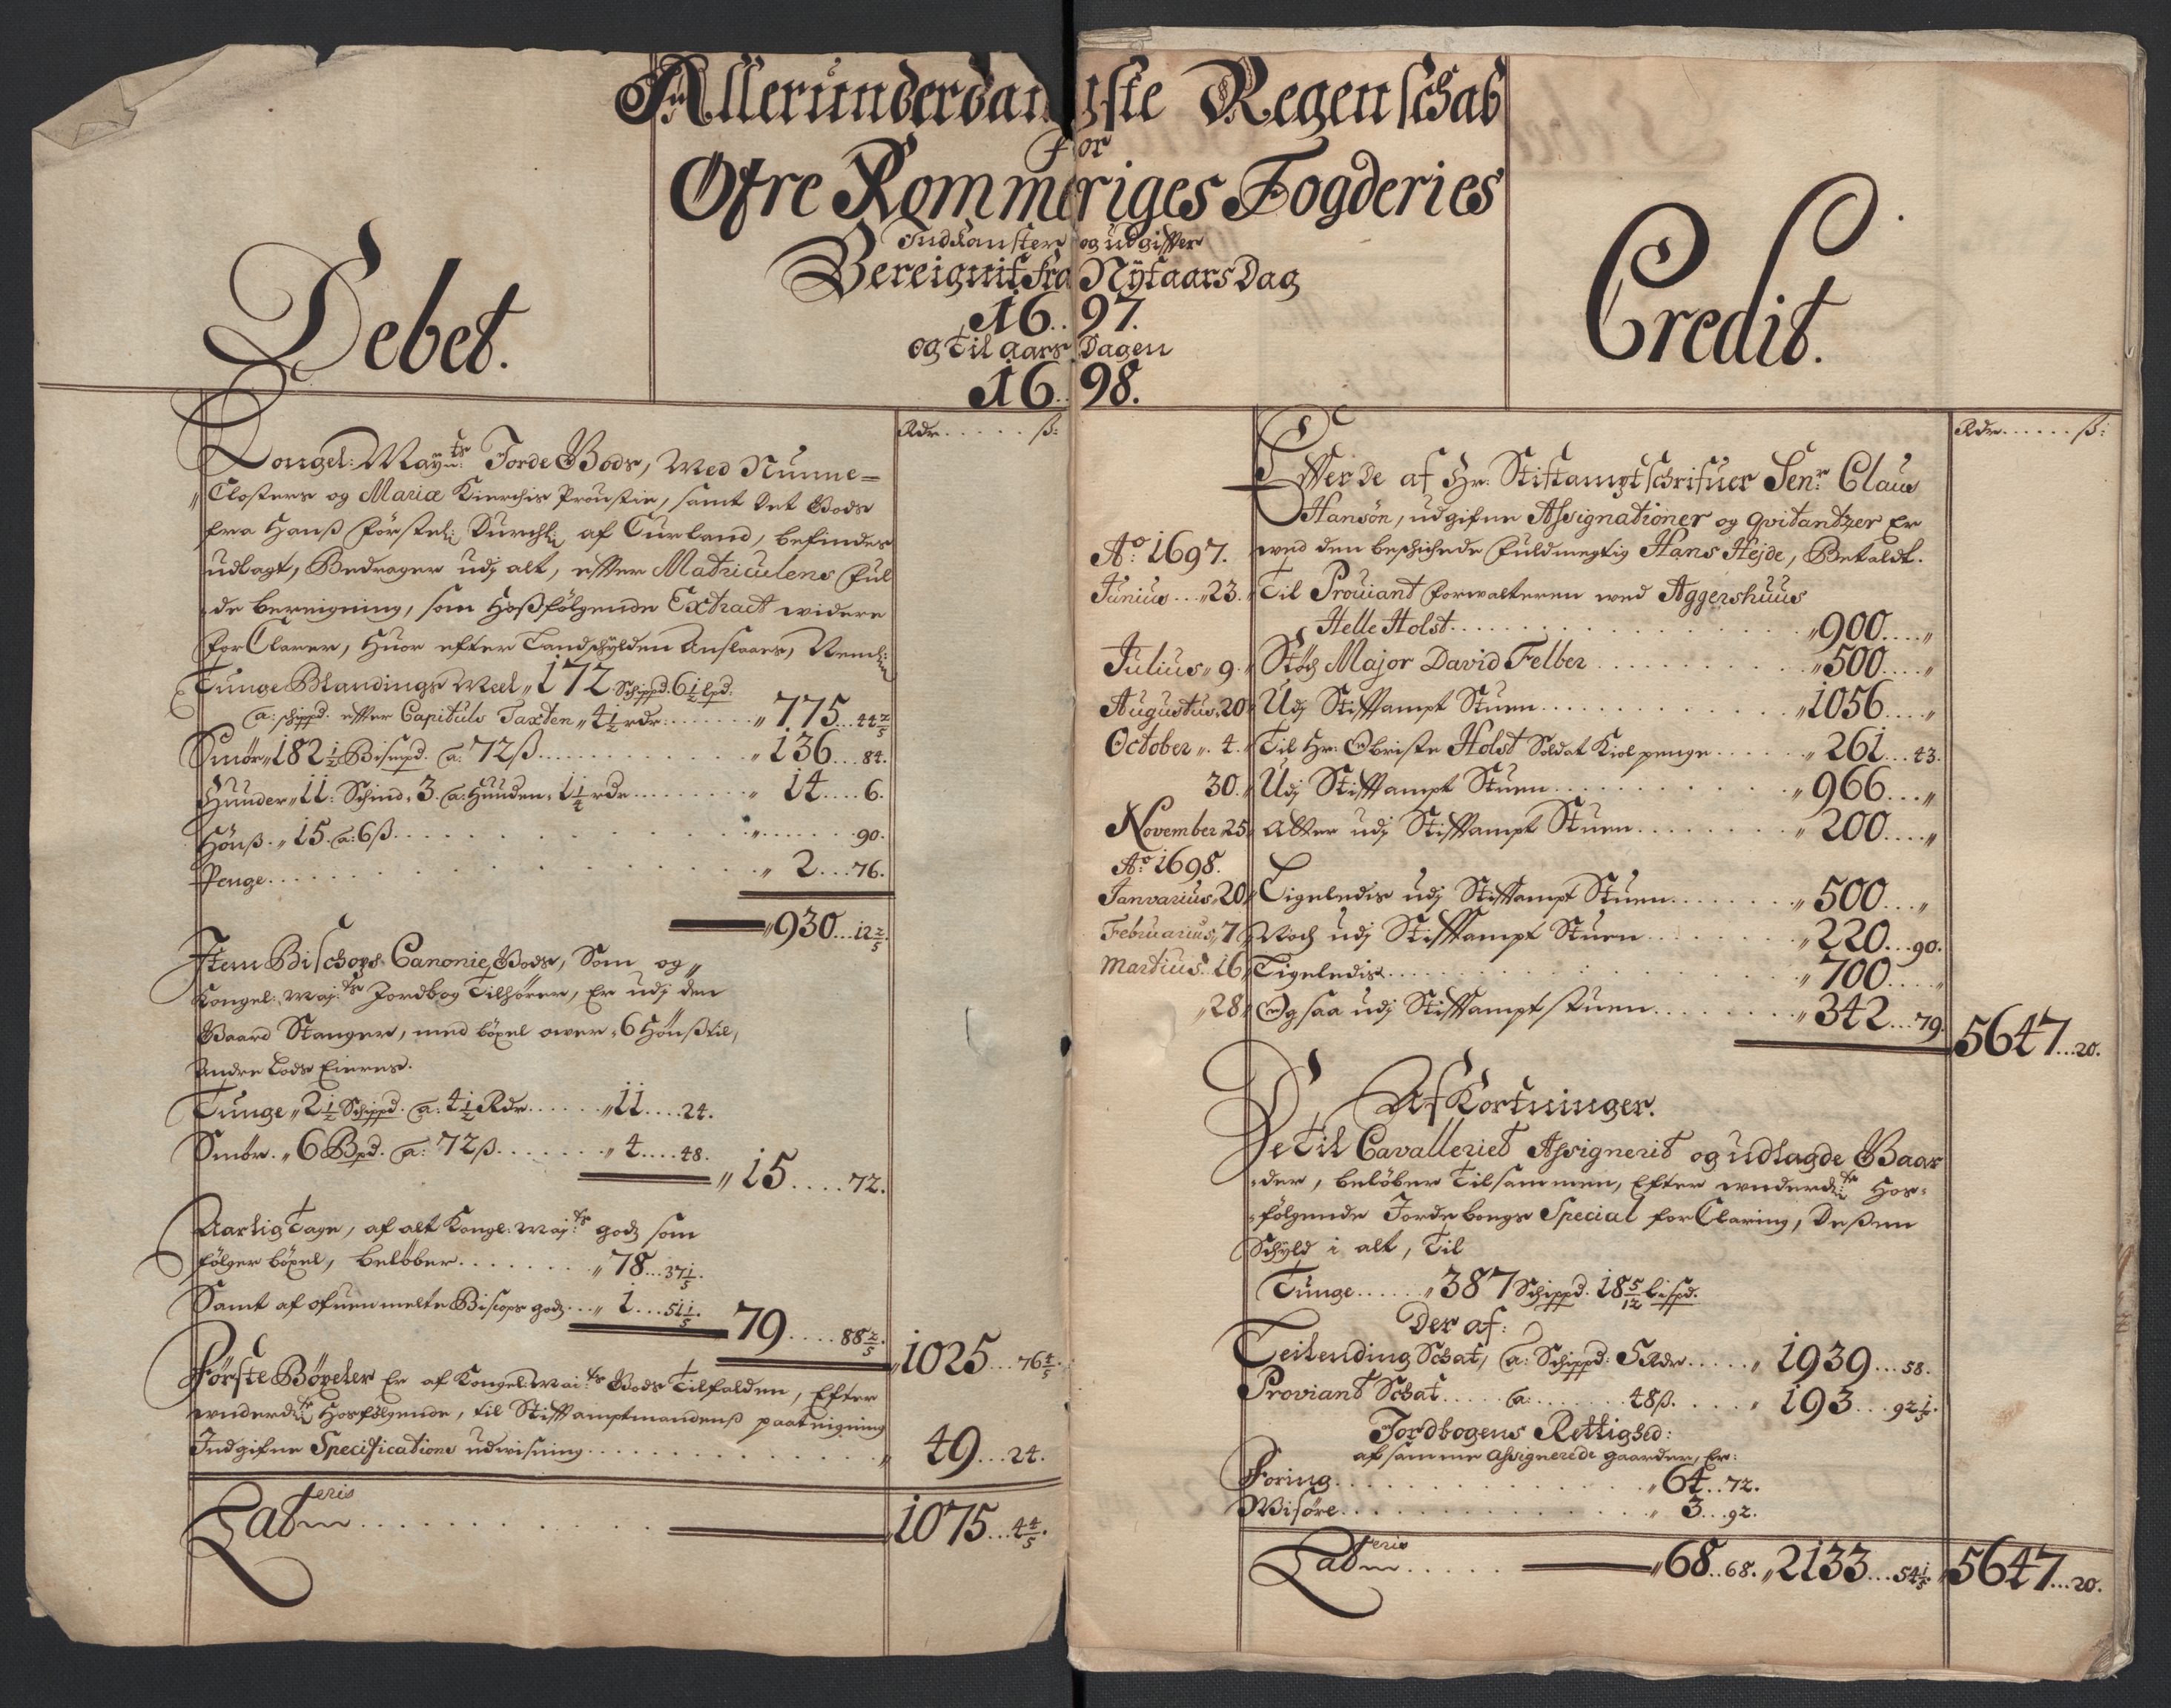 Allerunderdanigste Regenschab
for
Øfre Rommeriges Fogderies
Indkomster og udgiffter
Bereignit fra Nÿtaars Dag
1697.
og Til aars Dagen
1698.
Debet.
Rdr. . . . . ß:
Kongel: Mayts: Jorde Gods, Med Nunne=
Closters og Mariæ Kierchis Proustie, samt det Gods
fra Hans Förstel: Durchl: af Curland, befindes
udlagt, Bedrager udj alt, effter Matriculens ful
de bereigning, som Hoßfölgende Extract widere
forClarer, Huor efter Landschylden Anslaaes, Neml:
Tunge Blandings Meel „ 172 Schippd. 6½ lpd.
a: schippd. effter Capituls Taxten „ 4½ rdr. . . . . „ 775 . . 44 2/5
Smör „ 182½ Bismpd. a: 72 ß. . . . . „ 136 . . . 84.
Huuder „ 11: Schind „ 3. a: Huuden „ 1¼ rdr . . . . . „ 14 . . . . 6.
Hönß. „ 15. a: 6 ß. . . . . „ . . . . . 90.
Penge. . . . . „ 2 . . . 76.
„ 930 . . . 12 2/5.
Item Bischops Canonie Gods, Som og „
Kongel: Maj:ts Jordbog Tilhörer, Er udj den
Gaard Stanger, med böxel ower „ 6 Hönß til,
Andre Lods Eieres.
Tunge „ 2½ Schippd. a: 4½ Rdr. . . . . „ 11 . . . . 24.
Smör. „ 6 Bpd. a: 72 ß. . . . . „ 4 . . . . 48.
„ 15 . . . . 72.
Aarlig Tage, af alt Kongl: Maj:ts godz som
fölger böxel, belöber. . . . . „ 78 . . . 37 1/5.
Samt af ofuenmelte Biscops godz . . . „ 1 . . . 51 1/5.
79 . . . . 88 2/5.
„ 1025 . . . 76 4/5.
Förste Böxeler Er af Kongel: Mai:ts Gods Tilfalden, Efter
Hosfölgende, til Stifftamptmandens paateigning
Indgifne Specifications udwisning. . . . . „ 49 . . . 24.
Lateris
„ 1075 . . . 4 4/5.
Credit.
Rdr. . . . . ß:
Effter de af Hr. Stiftamptschrifuer Senr. Claus
Hansön, udgifne Assignationer og qvitantzer Er
Ao: 1697. wed den beschichede fuldmegtig Hans Hejde, Betaldt.
Junius . . . „ 23. Til Prouiant forwalteren wed Aggershuus
Helle Holst. . . . . „ 900 . . . . „
Julius „ 9. Major David Felber . . . . . „ 500 . . . . „
Augustus „ 20 Udj Stifftampt Stuen. . . . . „ 1056 . . . . „
October „ 4. Til Hr: Obriste Holst Soldat Kiolpenge . . . . . „ 261 . . . 43.
30. Udj Stifftampt Stuen. . . . . „ 966 . . . „
November „ 25 Atter udj Stifftampt Stuen. . . . . „ 200 . . . . „
Ao: 1698.
Janvarius „ 20 Ligeledis udj Stifftampt Stuen. . . . . „ 500 . . . „
Februarius „ 7 Noch udj Stifftampt Stuen . . . . . „ 220 . . . 90.
Martius 16 „ Ligeledis. . . . . „ 700 . . . . „
„ 28 „ Og saa udj Stifftampt stuen. . . . . „ 342 . . . 79.
5647 . . . 20.
AfKortninger.
De til Cavalleriet Assignerit og udlagde Gaar
der, belöber Tilsammen, Efter Hos=
fölgende Jordebogs Special forClaring, Deßen
Schyld i alt, Til
Tunge . . . . „ 387 Schippd. 18 5/12 lispd.
Der af:
Leilending Schat, a: Schippd: 5 Rdr . . . . „ 1939 . . . 58.
Proviant Schat. . . . . a: . . . . . 48 ß. . . . . „ 193 . . . 92 1/5.
Jordbogens Rettighed:
af samme Assignerede gaarder, Er:
Foring. . . . . „ 64 . . 72.
Wisöre. . . . . „ 3 . . . 92.
Lateris
„ 68 . . 68. „ 2133 . . . 54 1/5. 5647 . . . 20.